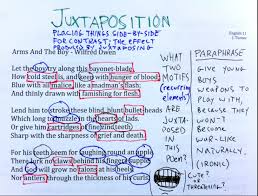 JUXTAPOSITION
English 11
PLACING THINGS SIDE-BY-SIDE
FOR CONTRAST; THE EFFECT
PRODUCED BY JUXTAPOSING
Arms And The Boy - Wilfred Owen
Let the boy try along this bayonet-blade
How cold steel is, and keen with hunger of blood;
Blue with all malice, like a madman's flash;
And thinly drawn with famishing for flesh.
Lend him to stroke these blind, blunt bullet-heads
Which long to nuzzle in the hearts of lads,
Or give him cartridges of fine zinc teeth
Sharp with the sharpness of grief and death.
For his teeth seem for laughing round an apple.
There lurk no claws behind his fingers supple;
And God will grow no talons at his heels,
Nor antlers through the thickness of his curls.
WHAT
TWO
MOTIFS
(recurring
elements)
ARE
JUXTA-
POSED
IN
THIS
POEM?
PARAPHRASE
GIVE YOUNG
BOYS
WEAPONS TO
PLAY WITH,
BECAUSE THEY
WON'T
BECOME
WAR-LIKE
NATURALLY.
(IRONIC)
CUTE?
OR
THREATENING?